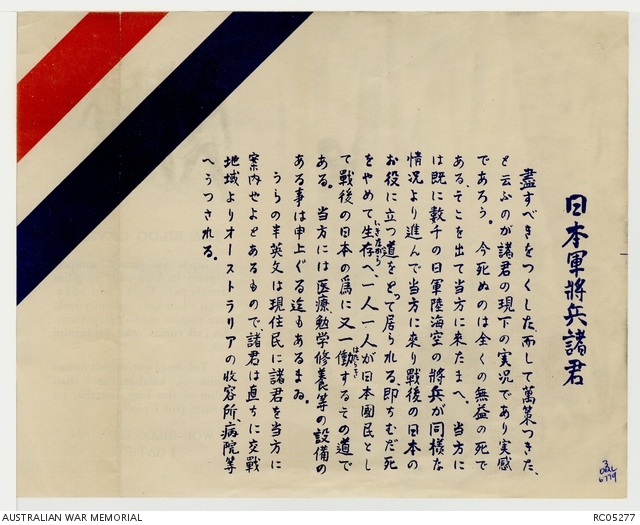 日本軍將兵諸君
盡すべきをつくした、而して萬策つきた、
と云ふのが諸君の現下の実況であり実感
であらう。今死ぬのは全くの無益の死で
ある、そこを出て当方に来たまへ。当方に
は既に数千の日軍陸海空の將兵が同様な
情况より進んで当方に来り戦後の日本の
お役に立つ道をとって居られる、即ちむだ死
をやめて、生存へ、一人一人が日本國民とし
て戦後の日本の為に又一働するその道で
ある。当方には医療、勉学修養等の設備の
ある事は申上ぐる迄もあるまゐ。
うらの半英文は現住民に諸君を当方に
案内せよとあるもので、諸君は直ちに交戦
地域よりオーストラリアの收容所、病院等
へうつされる。
AUSTRALIAN WAR MEMORIAL
RC05277